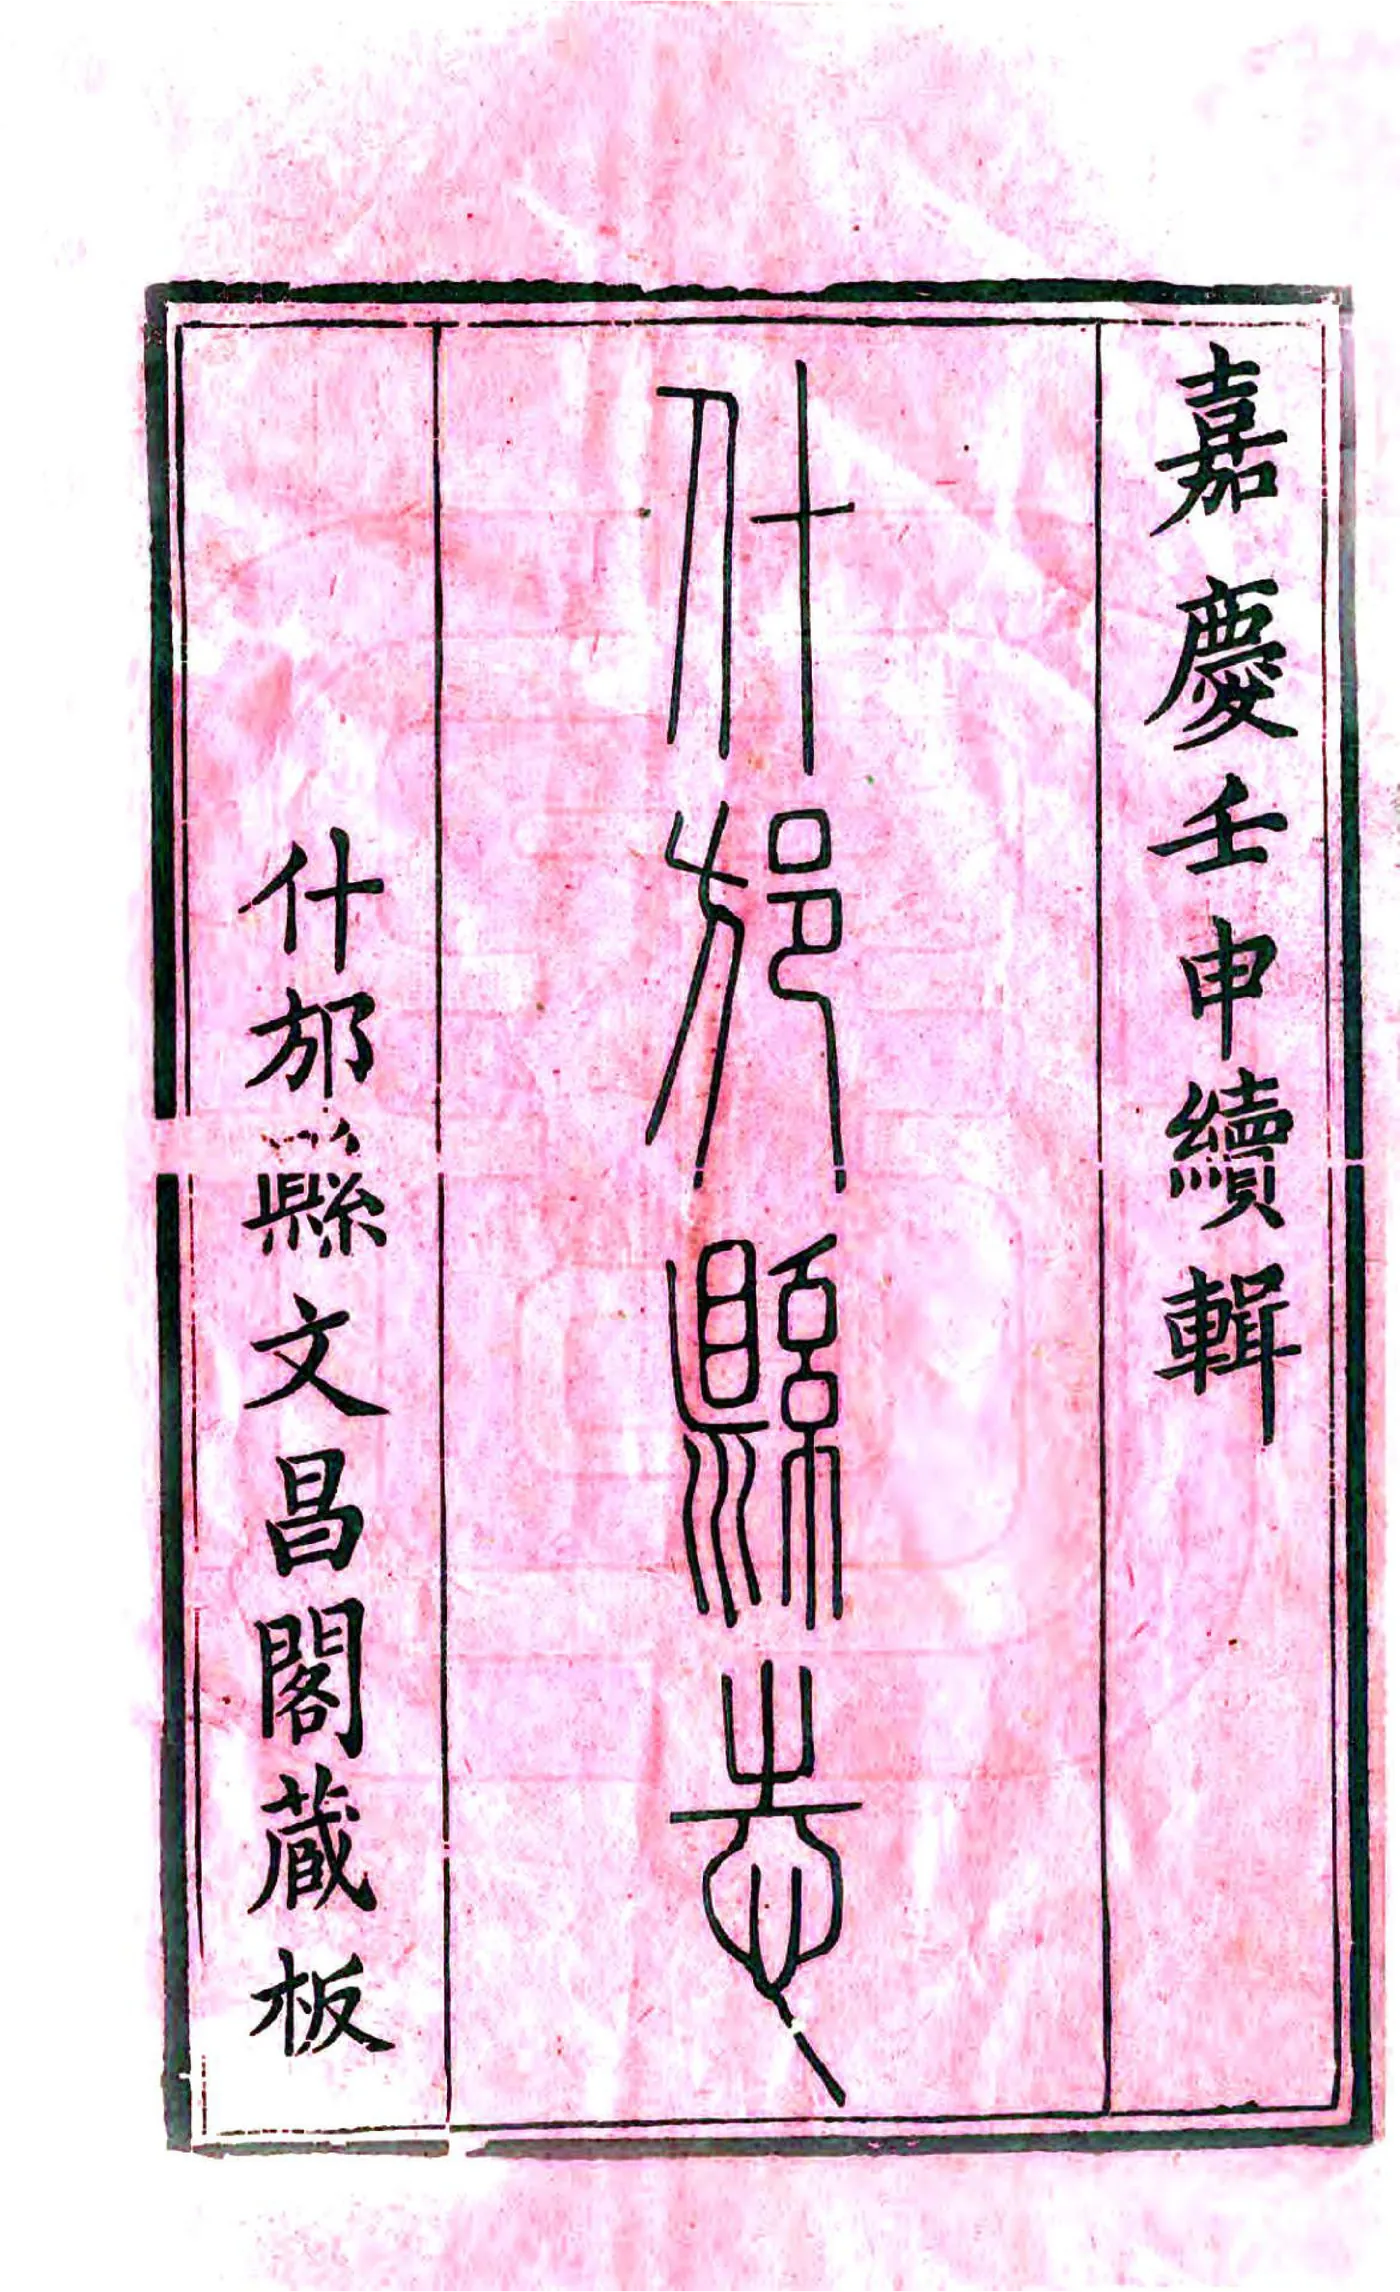 嘉慶壬申續輯
什邡縣志
什邡縣文昌閣藏板